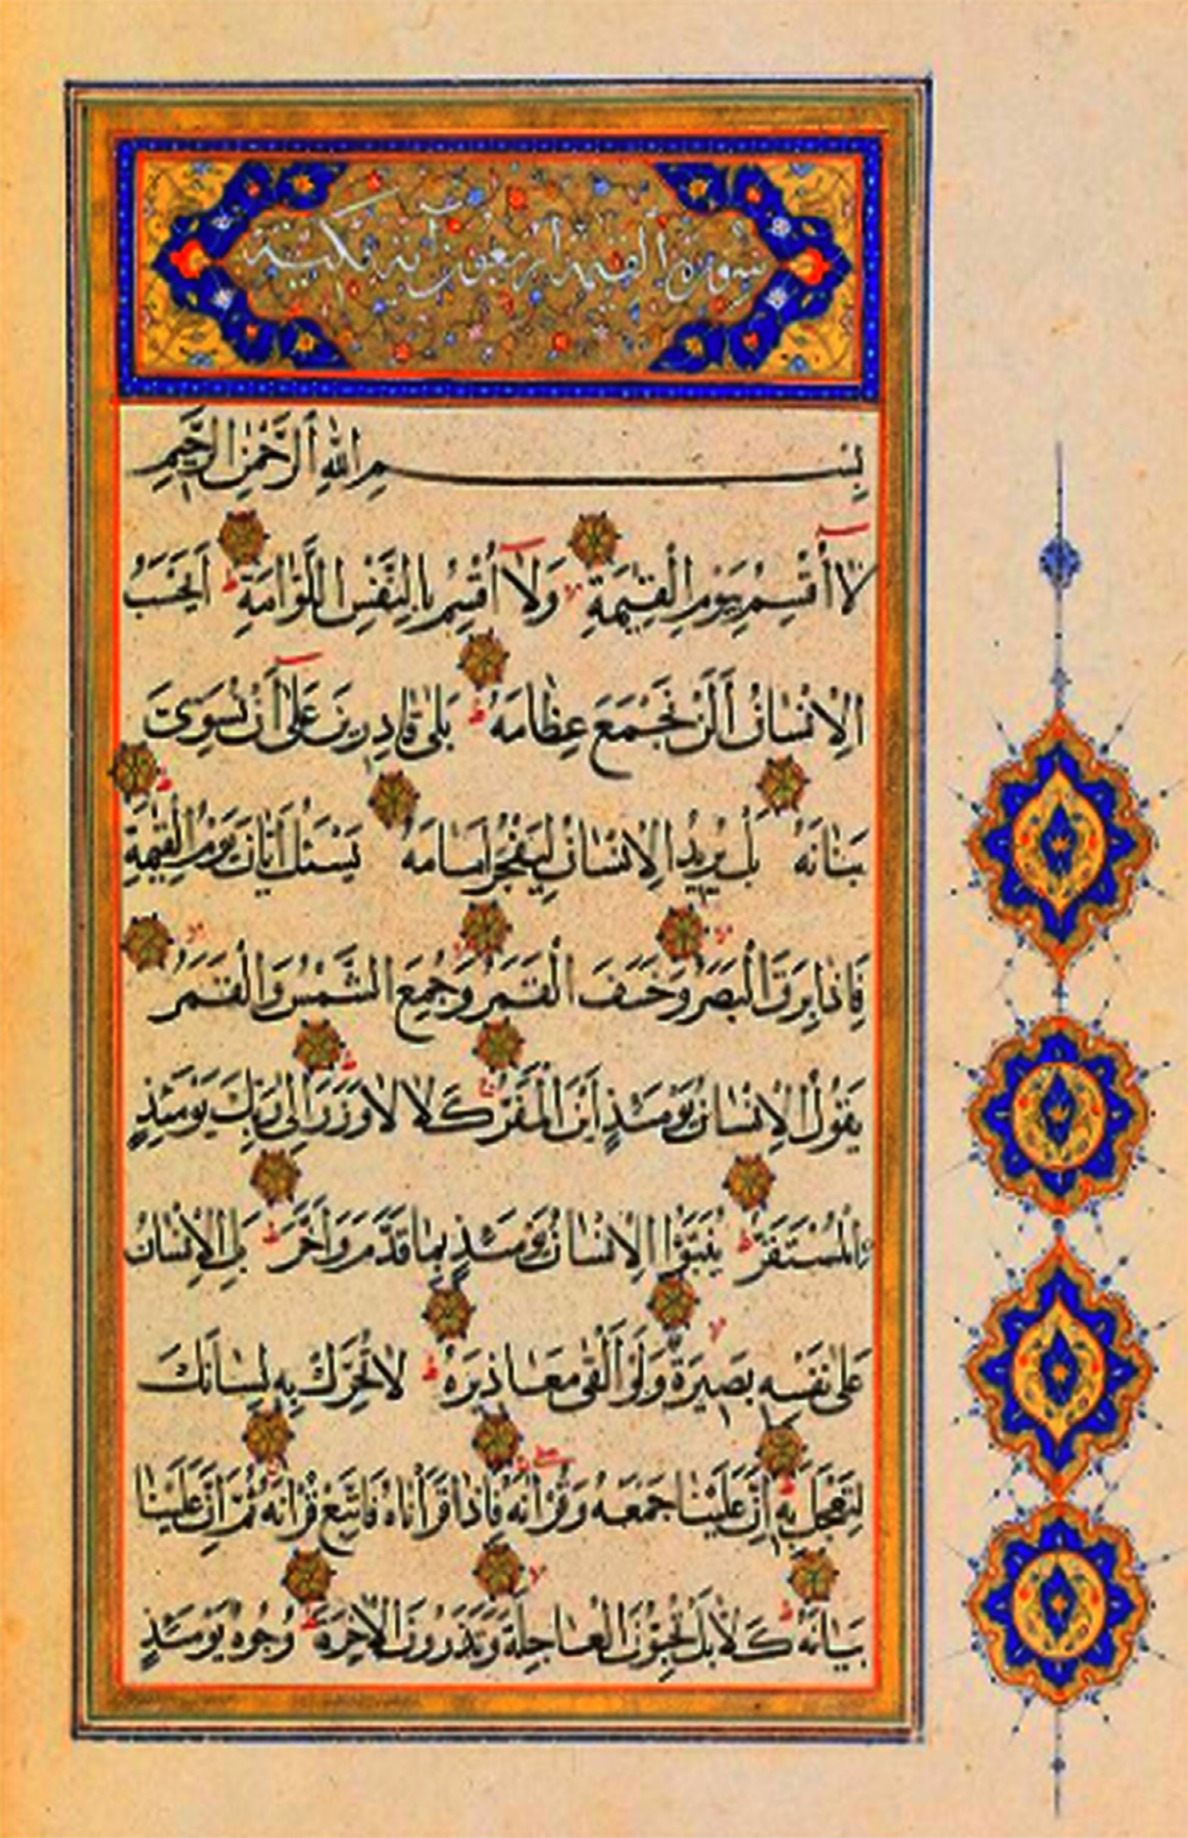 سورة القيمة اربعون آية مكية
بِسْمِ اللهِ الرَّحْمٰنِ الرَّحِيمِ
لَا أُقْسِمُ بِيَوْمِ الْقِيٰمَةِ وَلَا أُقْسِمُ بِالنَّفْسِ اللَّوَّامَةِ اَيَحْسَبُ
الْاِنْسَانُ اَلَّنْ نَجْمَعَ عِظَامَهُ بَلٰى قَادِرِينَ عَلٰى اَنْ نُسَوِّىَ
بَنَانَهُ بَلْ يُرِيدُ الْاِنْسَانُ لِيَفْجُرَ اَمَامَهُ يَسْئَلُ اَيَّانَ يَوْمُ الْقِيٰمَةِ
فَاِذَا بَرِقَ الْبَصَرُ وَخَسَفَ الْقَمَرُ وَجُمِعَ الشَّمْسُ وَالْقَمَرُ
يَقُولُ الْاِنْسَانُ يَوْمَئِذٍ اَيْنَ الْمَفَرُّ كَلَّا لَا وَزَرَ اِلٰى رَبِّكَ يَوْمَئِذٍ
الْمُسْتَقَرُّ يُنَبَّؤُا الْاِنْسَانُ يَوْمَئِذٍ بِمَا قَدَّمَ وَاَخَّرَ بَلِ الْاِنْسَانُ
عَلٰى نَفْسِهِ بَصِيرَةٌ وَلَوْ اَلْقٰى مَعَاذِيرَهُ لَا تُحَرِّكْ بِهِ لِسَانَكَ
لِتَعْجَلَ بِهِ اِنَّ عَلَيْنَا جَمْعَهُ وَقُرْاٰنَهُ فَاِذَا قَرَأْنَاهُ فَاتَّبِعْ قُرْاٰنَهُ ثُمَّ اِنَّ عَلَيْنَا
بَيَانَهُ كَلَّا بَلْ تُحِبُّونَ الْعَاجِلَةَ وَتَذَرُونَ الْاٰخِرَةَ وُجُوهٌ يَوْمَئِذٍ